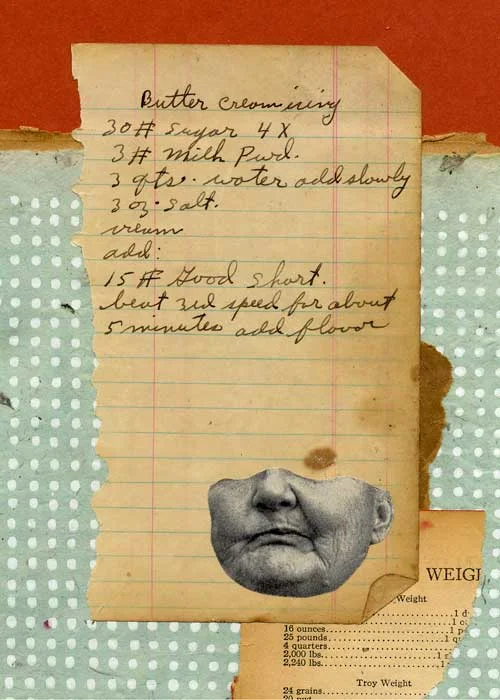 Butter cream icing
30# Sugar 4X
3# Milk Pwd.
3 qts. water add slowly
3 oz. Salt.
cream
add:
15# Good Short.
beat 3rd speed for about
5 minutes add flavor
WEIG
Weight
16 ounces
25 pounds
4 quarters
2,000 lbs.
2,240 lbs.
Troy Weight
24 grains